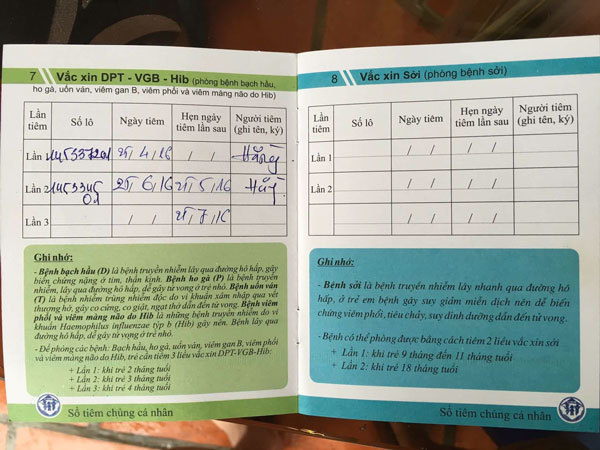 7 Vắc xin DPT - VGB - Hib (phòng bệnh bạch hầu,
ho gà, uốn ván, viêm gan B, viêm phổi và viêm màng não do Hib)
Lần tiêm Số lô Ngày tiêm Hẹn ngày tiêm lần sau Người tiêm (ghi tên, ký)
Lần 1 25/4/16 / / Hằng
Lần 2 25/6/16 25/5/16
Lần 3 / / 25/7/16
Ghi nhớ:
- Bệnh bạch hầu (D) là bệnh truyền nhiễm lây qua đường hô hấp, gây
biến chứng nặng ở tim, thần kinh. Bệnh ho gà (P) là bệnh truyền
nhiễm, lây qua đường hô hấp, dễ gây tử vong ở trẻ nhỏ. Bệnh uốn ván
(T) là bệnh nhiễm trùng nhiễm độc do vi khuẩn xâm nhập qua vết
thương hở, gây co cứng, co giật, ngạt thở dẫn đến tử vong. Bệnh viêm
phổi và viêm màng não do Hib là những bệnh truyền nhiễm do vi
khuẩn Haemophilus influenzae týp b (Hib) gây nên. Bệnh lây qua
đường hô hấp, dễ gây tử vong ở trẻ nhỏ.
- Để phòng các bệnh: Bạch hầu, ho gà, uốn ván, viêm gan B, viêm phổi
và viêm màng não do Hib, trẻ cần tiêm 3 liều vắc xin DPT-VGB-Hib:
+ Lần 1: khi trẻ 2 tháng tuổi
+ Lần 2: khi trẻ 3 tháng tuổi
+ Lần 3: khi trẻ 4 tháng tuổi
Sổ tiêm chủng cá nhân
8 Vắc xin Sởi (phòng bệnh sởi)
Lần tiêm Số lô Ngày tiêm Hẹn ngày tiêm lần sau Người tiêm (ghi tên, ký)
Lần 1 / / / /
Lần 2 / / / /
/ / / /
Ghi nhớ:
- Bệnh sởi là bệnh truyền nhiễm lây nhanh qua đường hô
hấp, ở trẻ em bệnh gây suy giảm miễn dịch nên dễ biến
chứng viêm phổi, tiêu chảy, suy dinh dưỡng dẫn đến tử vong.
- Bệnh có thể phòng được bằng cách tiêm 2 liều vắc xin sởi
+ Lần 1: khi trẻ 9 tháng đến 11 tháng tuổi
+ Lần 2: khi trẻ 18 tháng tuổi
Sổ tiêm chủng cá nhân